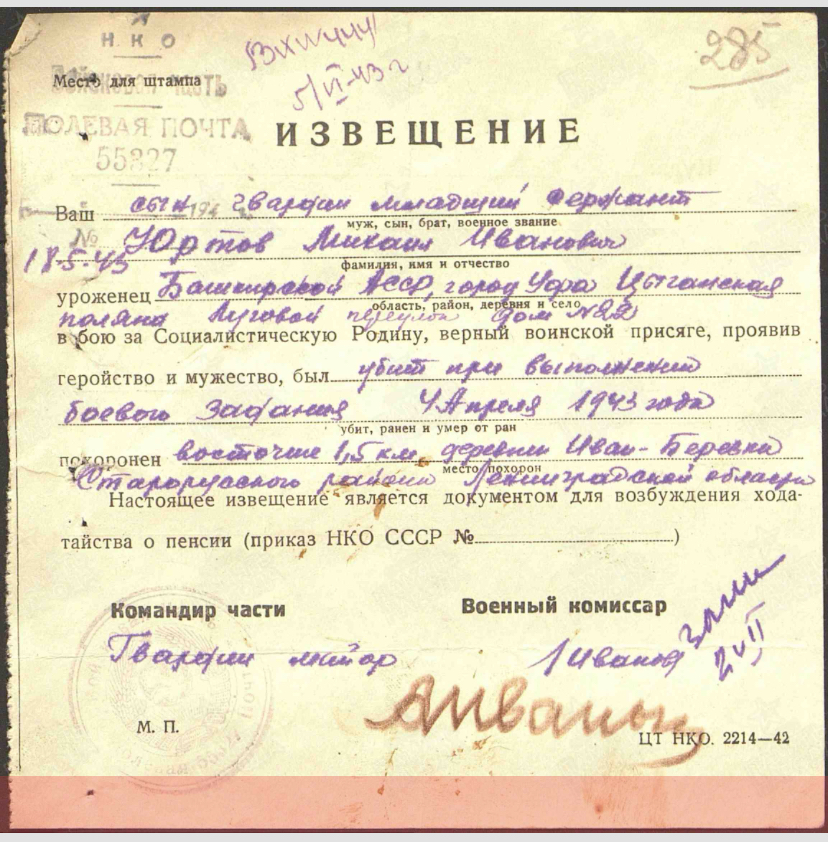 НКО
Место для штампа
Войсковая часть
ПОЛЕВАЯ ПОЧТА
55827
5/VI-43 г
285
ИЗВЕЩЕНИЕ
Ваш сын гвардии младший сержант
муж, сын, брат, военное звание
194
№ Юртов Михаил Иванович
18-5-43
фамилия, имя и отчество
уроженец Башкирской АССР, город Уфа Цыганская
область, район, деревня и село
поляна Луговой переулок дом №22
в бою за Социалистическую Родину, верный воинской присяге, проявив
геройство и мужество, был убит при выполнении
боевого задания 4 Апреля 1943 года
убит, ранен и умер от ран
похоронен восточне 1,5 км деревни Иван-Березки
место похорон
Старорусского района Ленинградской области
Настоящее извещение является документом для возбуждения хода-
тайства о пенсии (приказ НКО СССР №)
Командир части
Военный комиссар
Гвардии майор
Иванов
М. П.
ЦТ НКО. 2214—42